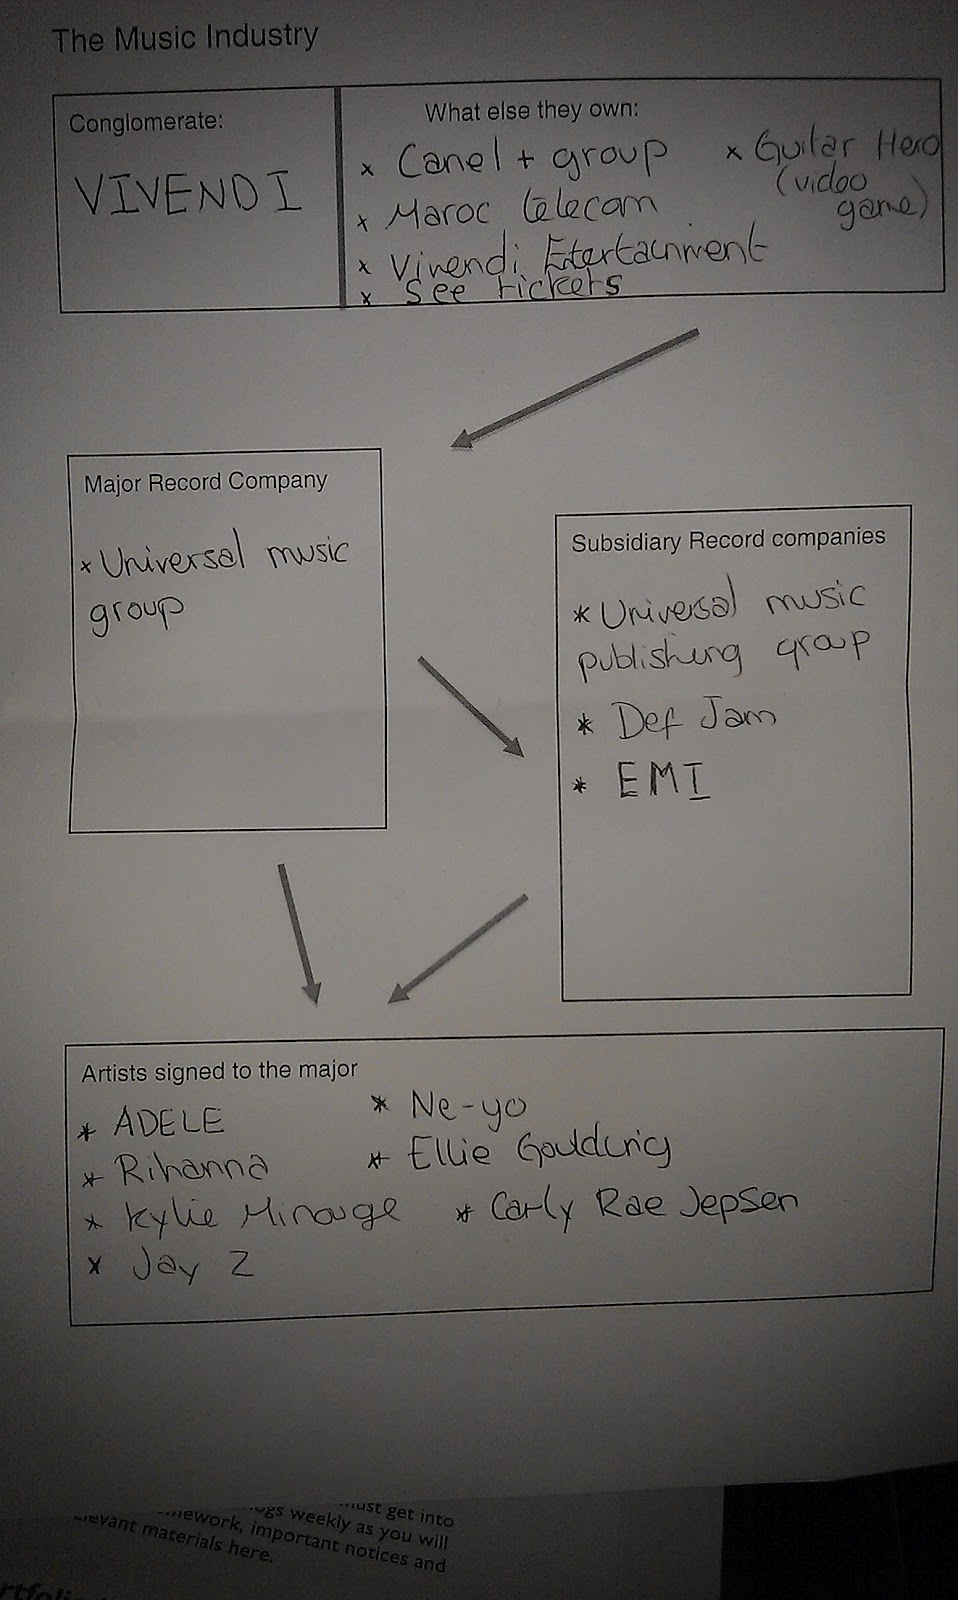 The Music Industry
Conglomerate:
VIVENDI
What else they own:
x Canel + group
x Maroc telecom
x Vivendi Entertainment
x See tickets
x Guitar Hero
(video
game)
Major Record Company
x Universal music
group
Subsidiary Record companies
* Universal music
publishing group
* Def Jam
* EMI
Artists signed to the major
* ADELE
* Rihanna
* Kylie Minouge
x Jay Z
* Ne-yo
* Ellie Goulding
* Carly Rae Jepsen
must get into
weekly as you will
important notices and
materials here.